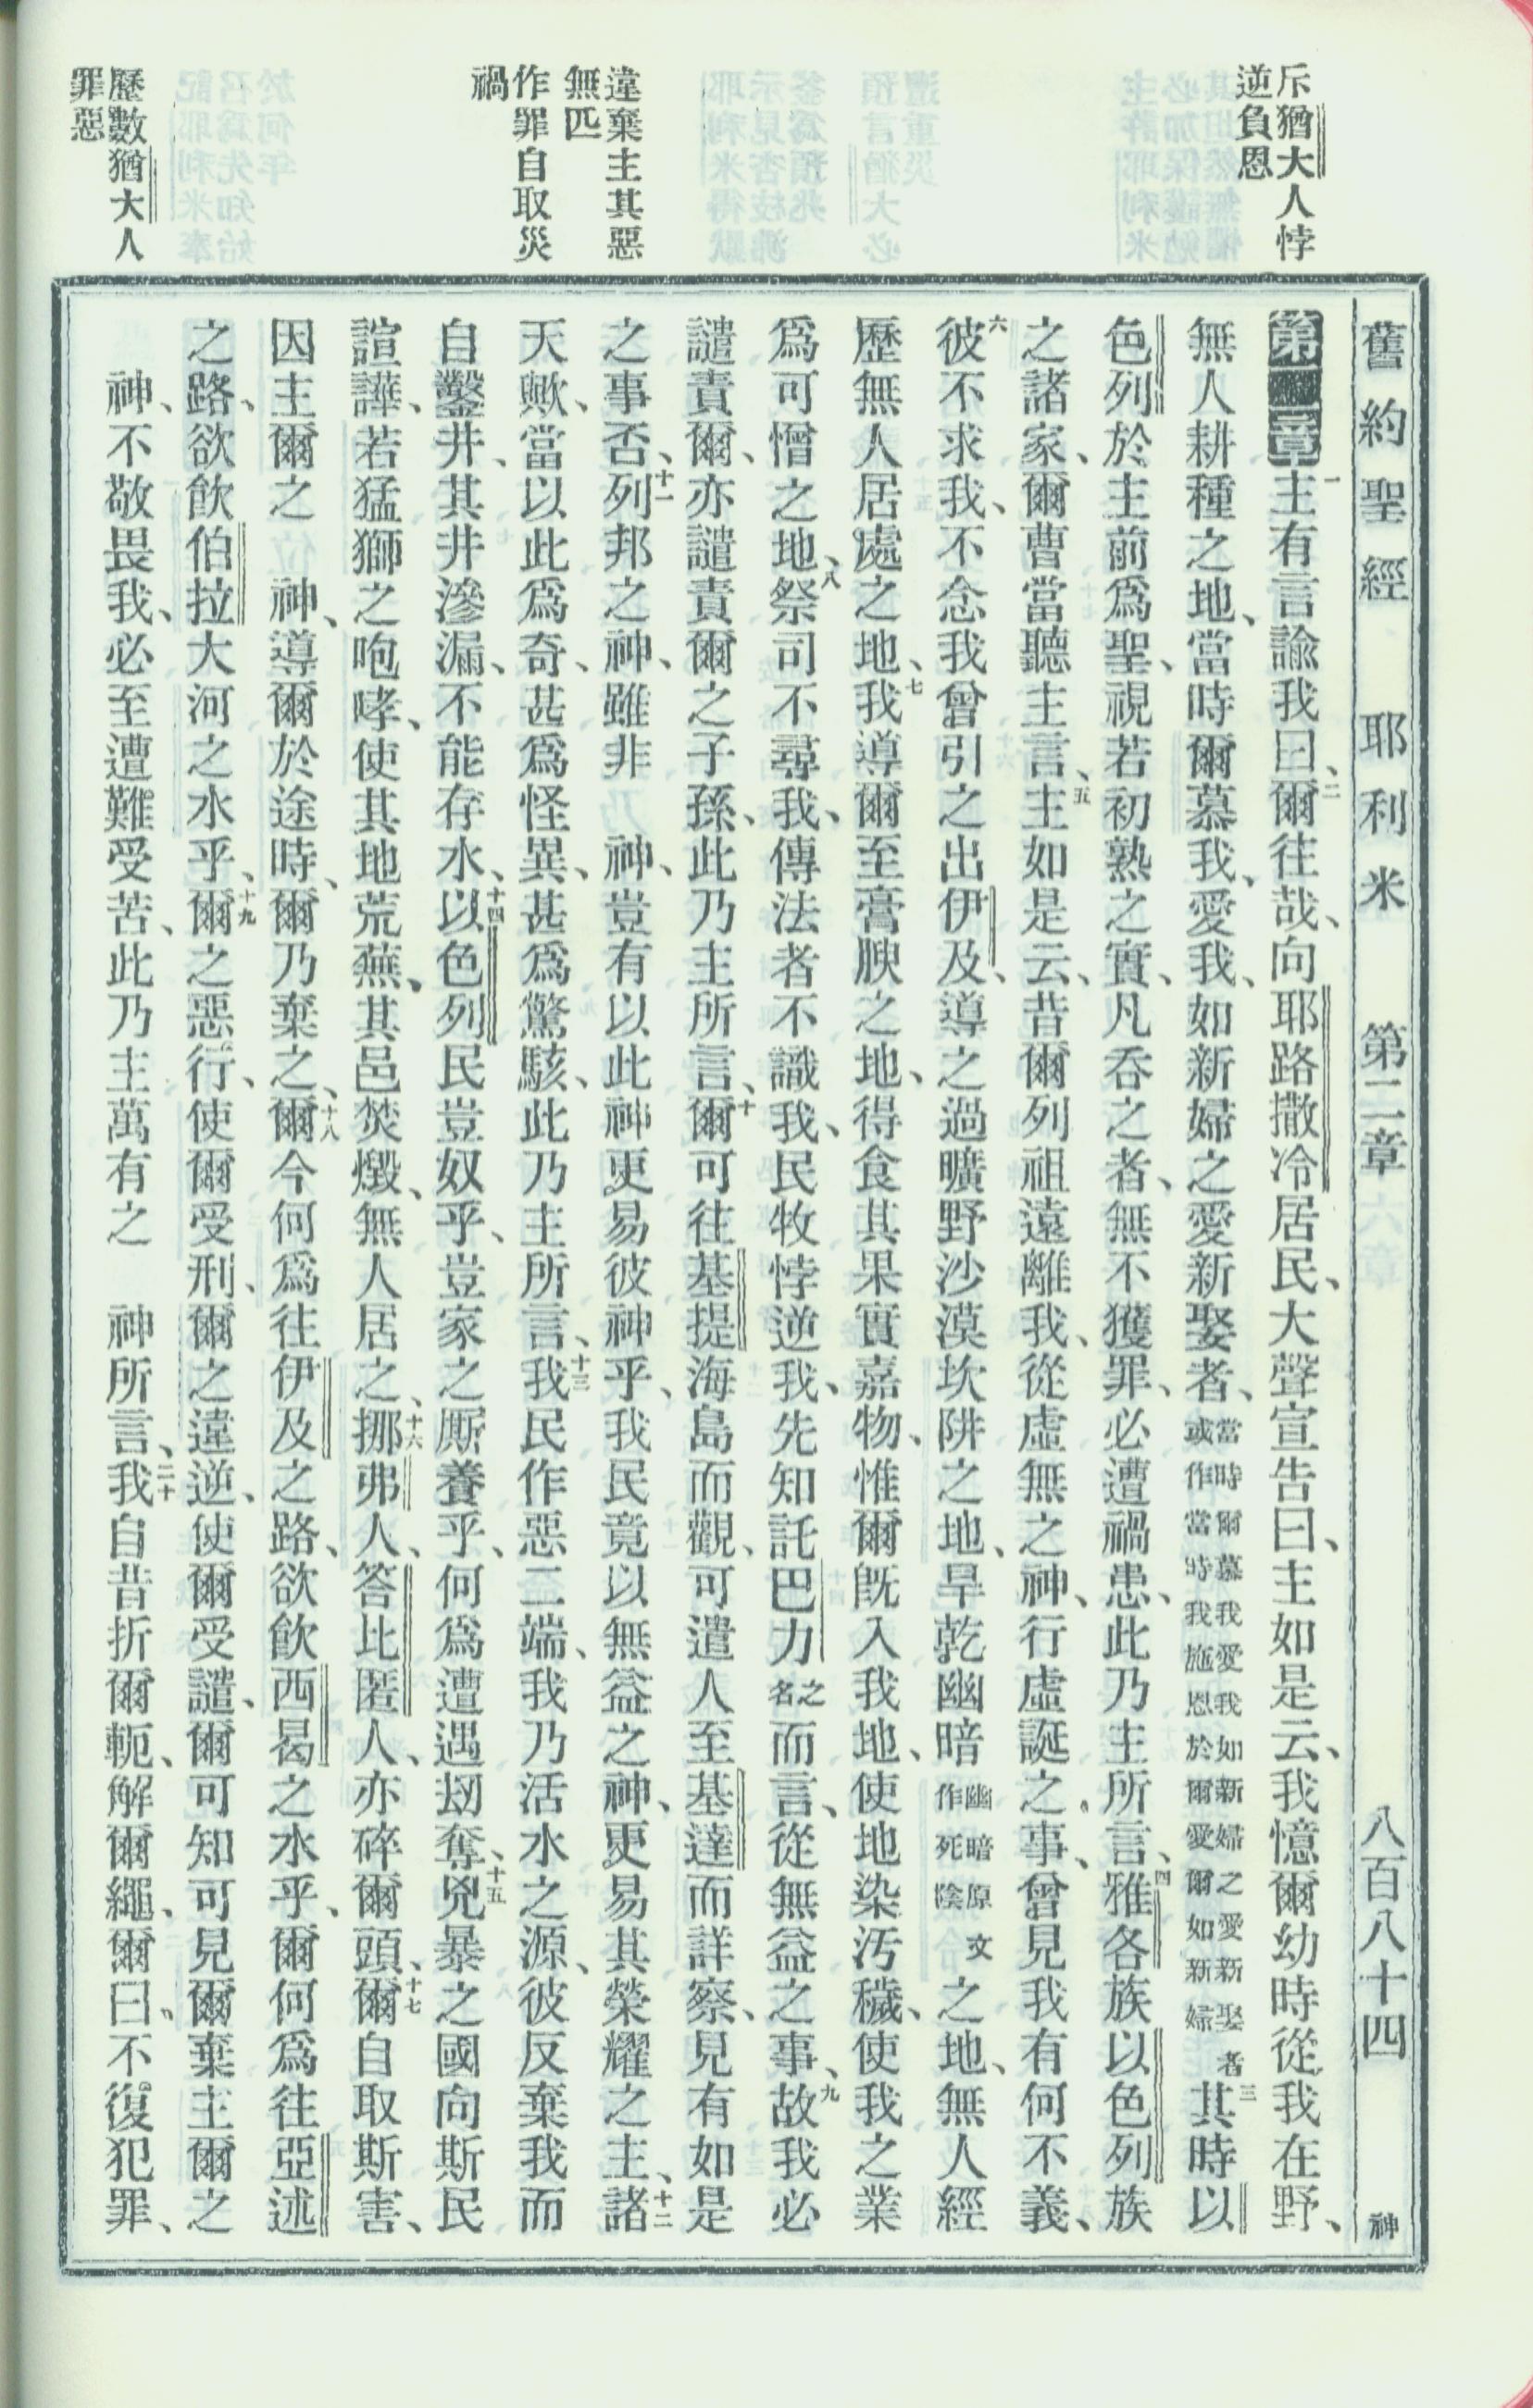 舊約聖經　耶利米　第二章　八百八十四　神
斥猶大人悖
逆負恩
違棄主其惡
無匹
作罪自取災
禍
歷數猶大人
罪惡
第二章一主有言諭我曰、二爾往哉、向耶路撒冷居民、大聲宣告曰、主如是云、我憶爾幼時從我在野、
無人耕種之地、當時爾慕我、愛我、如新婦之愛新娶者、當時爾慕我愛我如新婦之愛新娶者或作當時我施恩於爾愛爾如新婦三其時以
色列於主前爲聖、視若初熟之實、凡吞之者、無不獲罪、必遭禍患、此乃主所言、四雅各族以色列族
之諸家、爾曹當聽主言、五主如是云、昔爾列祖遠離我、從虛無之神、行虛誕之事、曾見我有何不義、
六彼不求我、不念我曾引之出伊及、導之過曠野沙漠坎阱之地、旱乾幽暗幽暗原文作死陰之地、無人經
歷無人居處之地、七我導爾至膏腴之地、得食其果實嘉物、惟爾既入我地、使地染污穢、使我之業
爲可憎之地、八祭司不尋我、傳法者不識我、民牧悖逆我、先知託巴力之名而言、從無益之事、九故我必
譴責爾、亦譴責爾之子孫、此乃主所言、十爾可往基提海島而觀、可遣人至基達而詳察、見有如是
之事否、十一列邦之神、雖非　神、豈有以此神更易彼神乎、我民竟以無益之神、更易其榮耀之主、十二諸
天歟、當以此爲奇、甚爲怪異、甚爲驚駭、此乃主所言、十三我民作惡二端、我乃活水之源、彼反棄我而
自鑿井、其井滲漏、不能存水、十四以色列民豈奴乎、豈家之厮養乎、何爲遭遇刼奪、十五兇暴之國向斯民
諠譁、若猛獅之咆哮、使其地荒蕪、其邑焚燬、無人居之、十六挪弗人、答比匿人、亦碎爾頭、十七爾自取斯害、
因主爾之　神、導爾於途時、爾乃棄之、十八爾今何爲往伊及之路、欲飮西曷之水乎、爾何爲往亞述
之路、欲飮伯拉大河之水乎、十九爾之惡行、使爾受刑、爾之違逆、使爾受譴、爾可知可見爾棄主爾之
　神、不敬畏我、必至遭難受苦、此乃主萬有之　神所言、二十我自昔折爾軛、解爾繩、爾曰、不復犯罪、